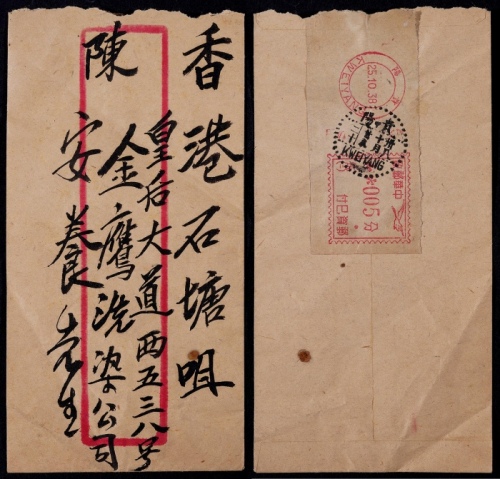 香港石塘咀
皇后大道西五三八号
金鷹洗染公司
陳
安養先生
KWEIYANG
25.10.38
KWEIYANG
005
分